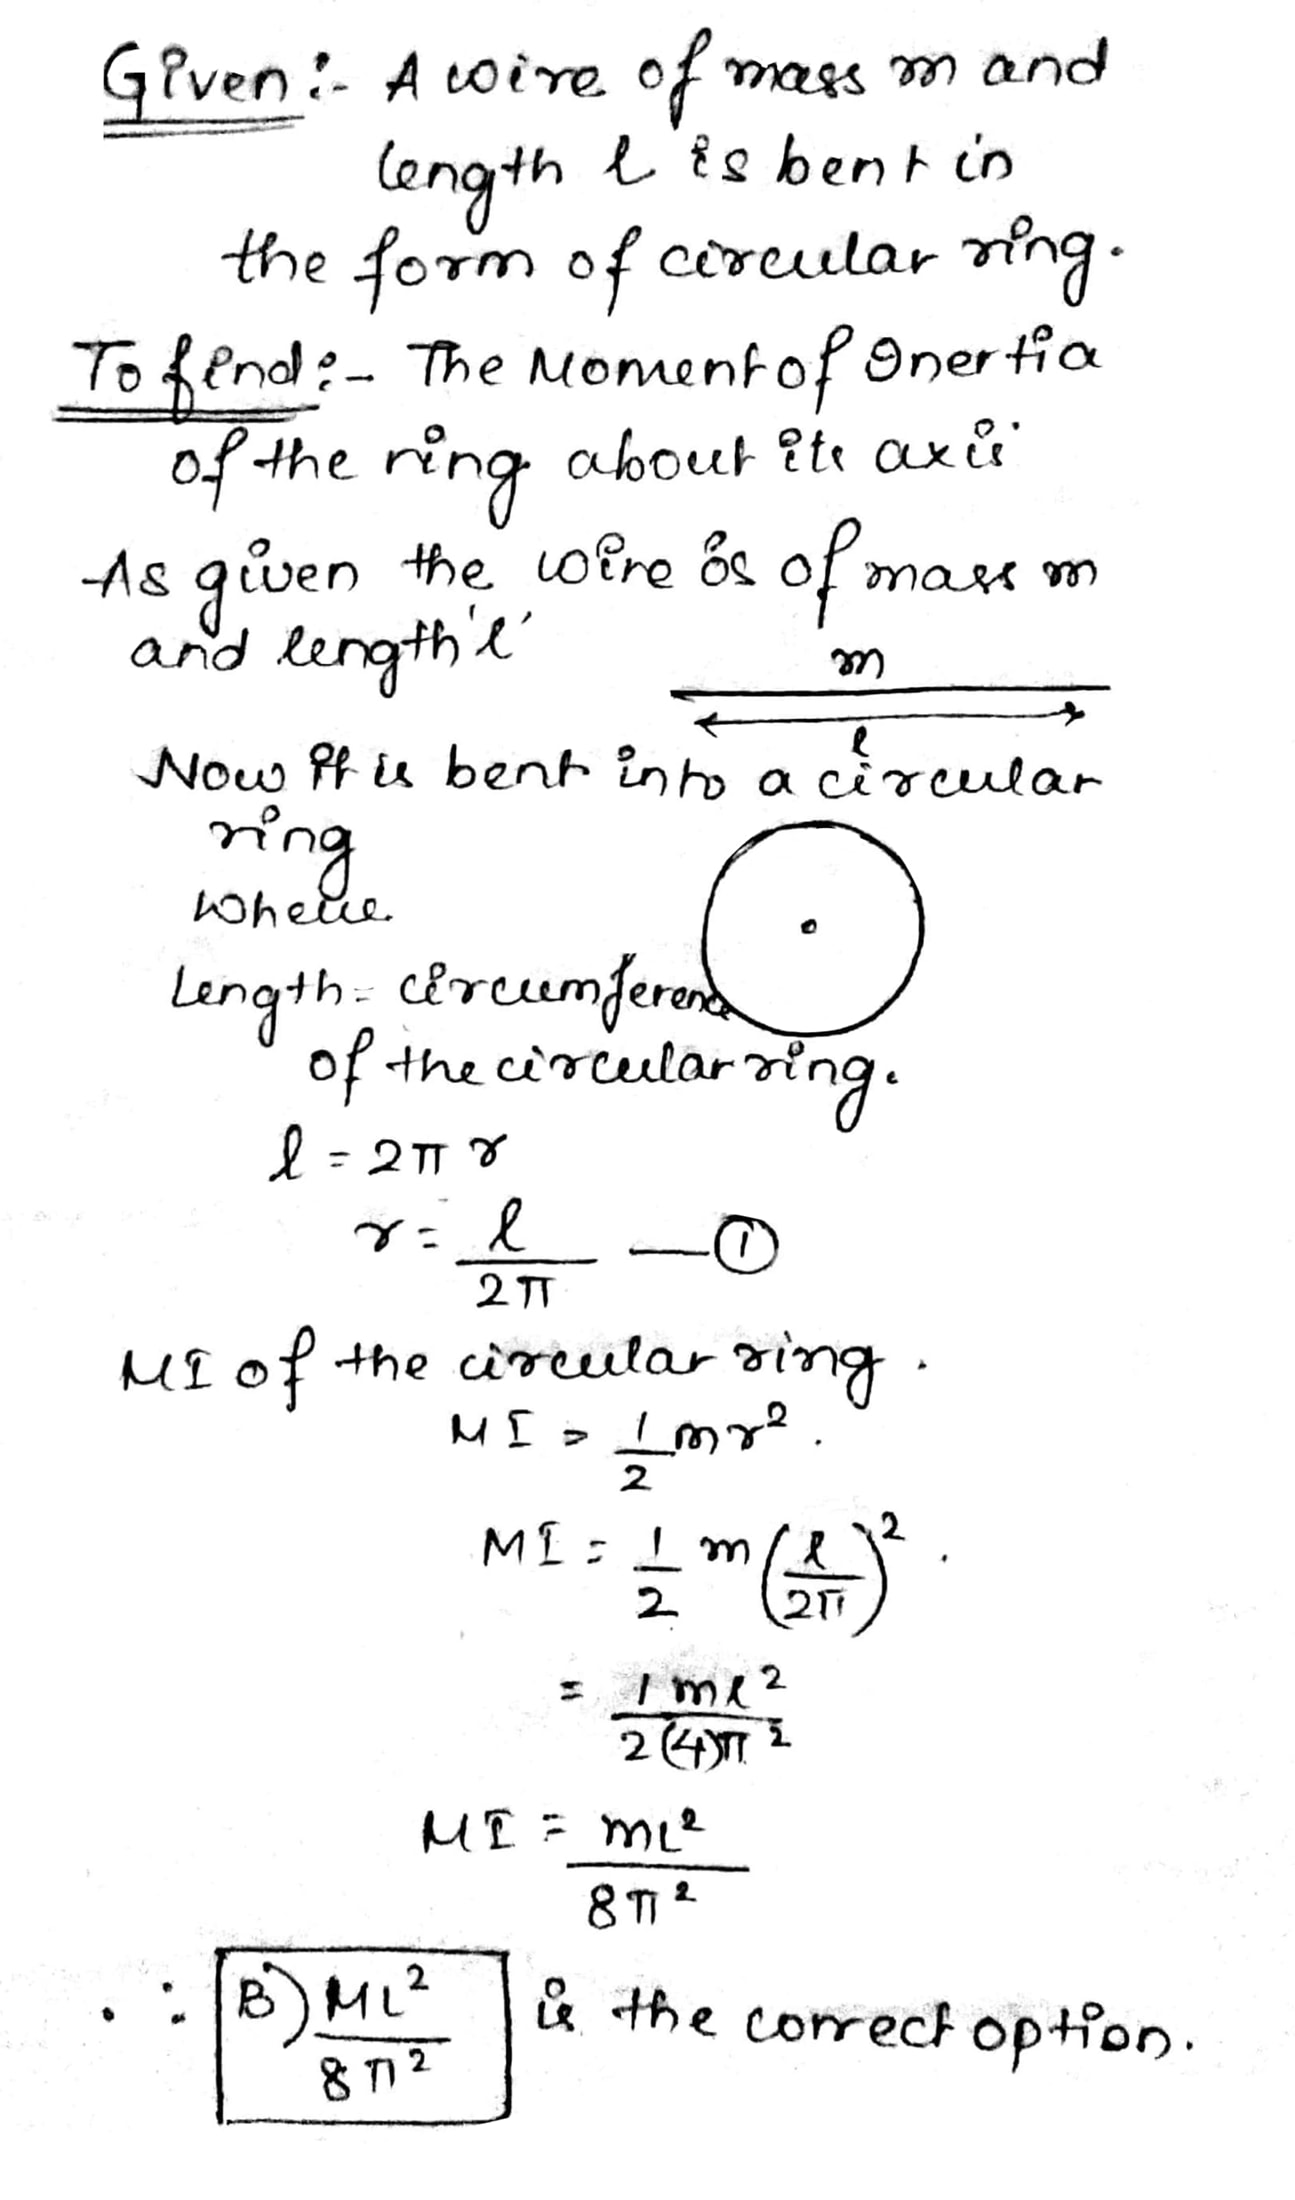 Given :- A wire of mass m and
length l is bent in
the form of circular ring.
To find :- The Moment of Inertia
of the ring about its axis
As given the wire is of mass m
and length 'l'
m
l
Now it is bent into a circular
ring
where
Length = circumference
of the circular ring.
l = 2π r
r = l / 2π —①
MI of the circular ring.
MI = 1/2 mr².
MI = 1/2 m (l/2π)².
= 1 ml² / 2(4)π²
MI = mL² / 8π²
∴ B) ML² / 8π² is the correct option.